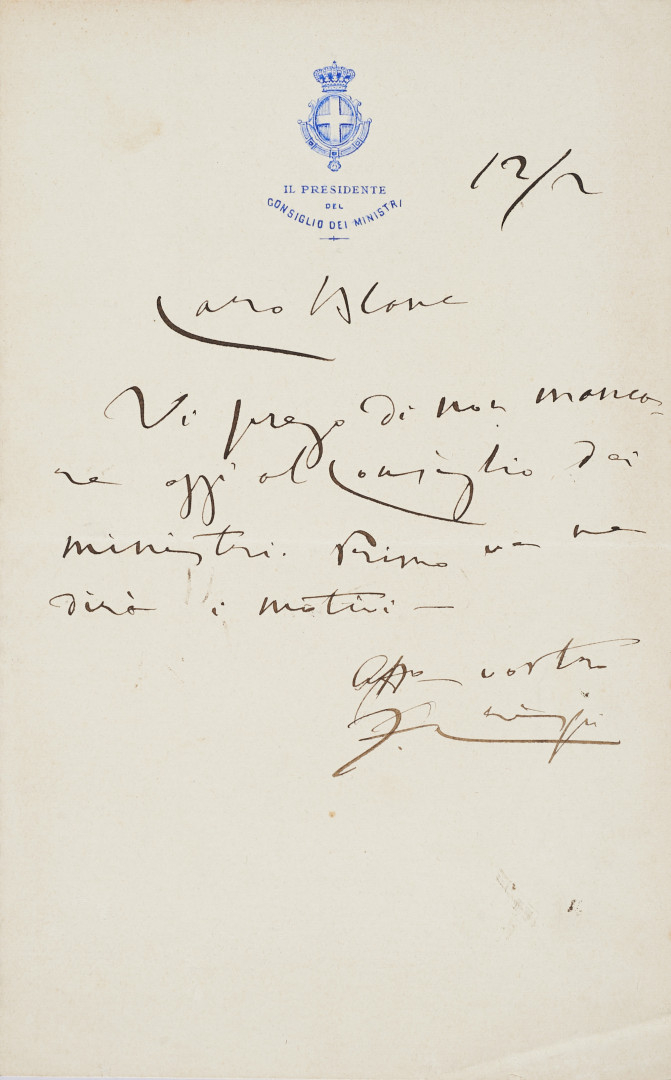 IL PRESIDENTE
DEL
CONSIGLIO DEI MINISTRI
12/2
Caro Blanc
Vi prego di non manca-
re oggi al Consiglio dei
ministri. Primo ve ne
dirò i motivi —
Affo vostro
F. Crispi